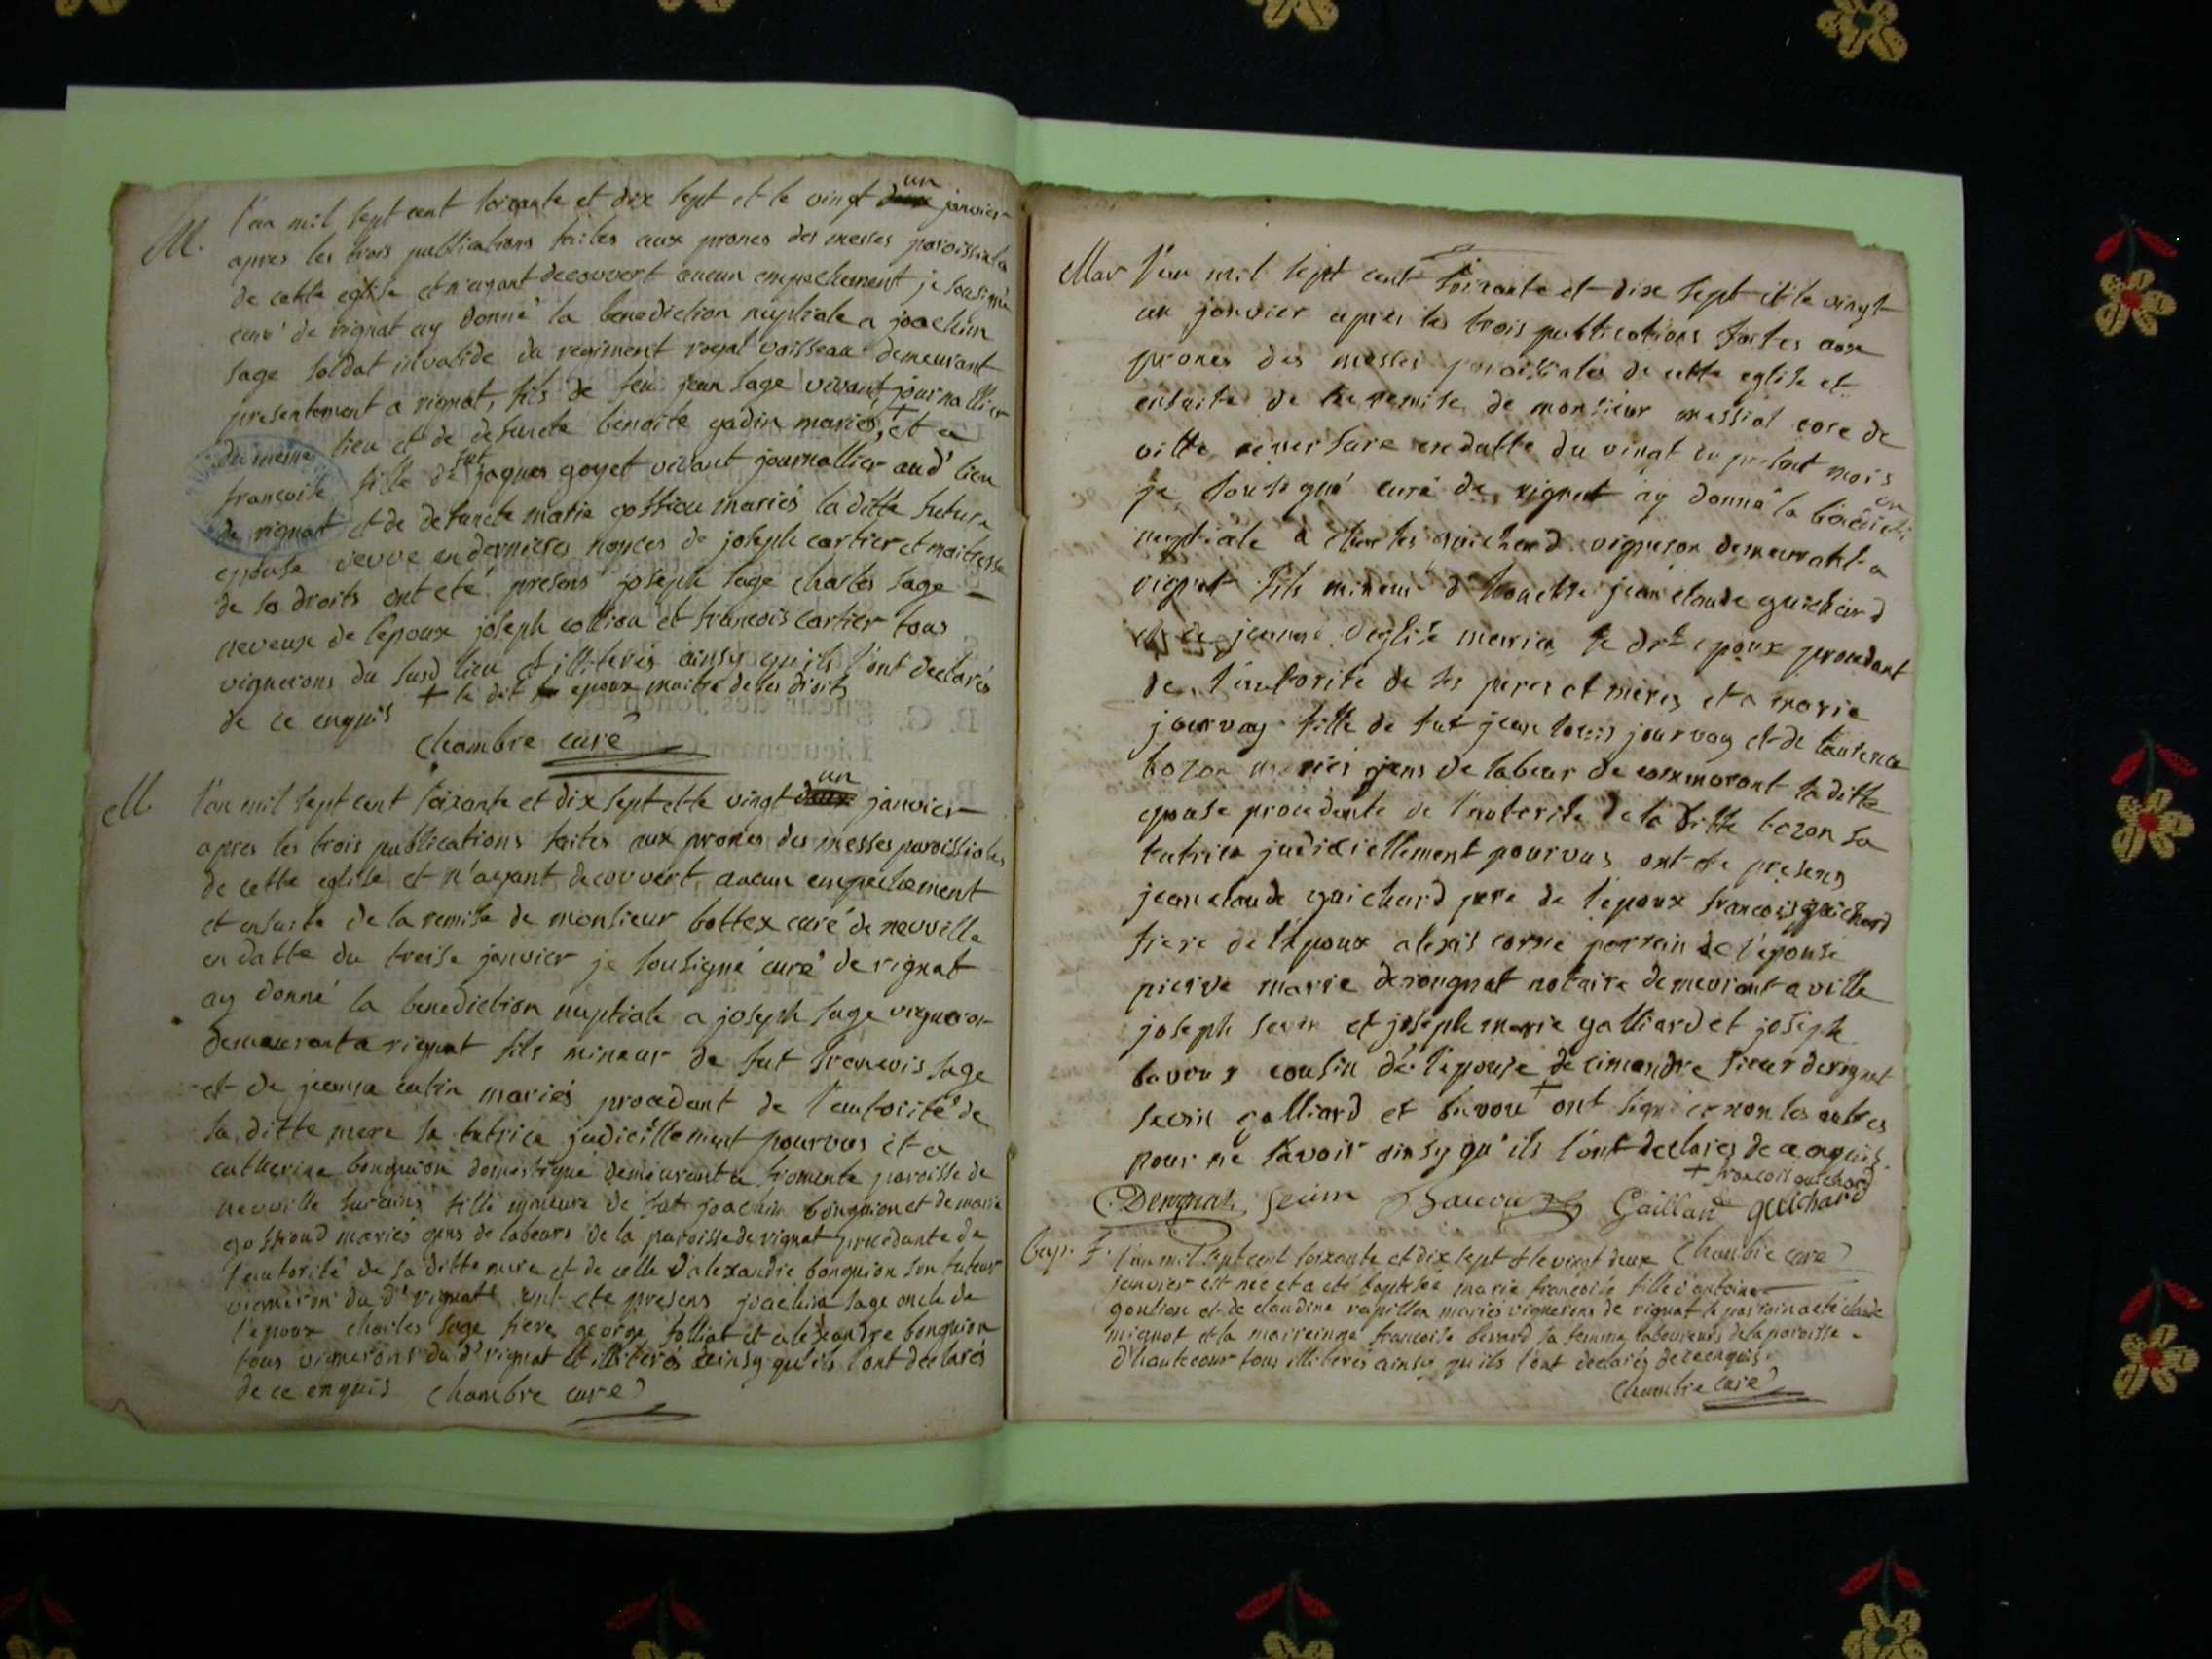 M. l'an mil sept cent soixante et dix sept et le vingt un janvier
apres les trois publications faites aux prones des messes paroissiales
de cette eglise et n'ayant decouvert aucun empechement je sousigné
curé de rignat ay donné la benediction nuptiale a joachim
sage soldat invalide du regiment royal vaisseau demeurant
presentement a rignat, fils de feu jean sage vivant journallier
du meme lieu et de defuncte benoite gadin mariés, + et a
francoise fille de fut jaques goyet vivant journallier aud' lieu
de rignat et de defuncte marie gossiou mariés la ditte future
epouse vevve en dernieres nopces de joseph cartier et maitresse
de ses droits ont eté presens joseph sage charles sage
neveux de l'epoux joseph et francois cartier tous
vignerons du susd lieu et illiterés ainsy qu'ils l'ont declarés
de ce enquis + le dit epoux maitre de ses droits
Chambre curé
M l'an mil sept cent soixante et dix sept et le vingt un janvier
apres les trois publications faites aux prones des messes paroissiales
de cette eglise et n'ayant decouvert aucun empechement
et ensuite de la remise de monsieur bottex curé de neuville
en datte du treise janvier je sousigné curé de rignat
ay donné la benediction nuptiale a joseph sage vigneron
demeurant a rignat fils mineur de fut francois sage
et de jeanne catin mariés procedant de l'autorité de
sa ditte mere sa tutrice judiciellement pourvus et a
catherine bonguion domestique demeurant a fromente paroisse de
neuville sur ains fille mineure de fut joachim bonguion et de marie
mariés gens de labeurs de la paroisse de rignat procedante de
l'autorité de sa ditte mere et de celle d'alexandre bonguion son tuteur
vigneron du d' rignat ont eté presens joachim sage oncle de
l'epoux charles sage frere george folliat et alexandre bonguion
tous vignerons du d' rignat et illiterés ainsy qu'ils l'ont declarés
de ce enquis Chambre curé
Mar l'an mil sept cent soixante et dix sept et le vingt
un janvier apres les trois publications faites aux
prones des messes paroissiales de cette eglise et
ensuite de la remise de monsieur messiat cure de
ville reversure en datte du vingt du present mois
je sousigné curé de rignat ay donné la benediction
nuptiale a guichard vigneron demeurant a
rignat fils mineur d'honette jean claude guichard
et de jeanne mariés le dit epoux procedant
de l'autorité de ses peres et meres et a marie
jourvay fille de fut jean louis jourvay et de laurence
bozon mariés gens de labeur de la ditte
epouse procedante de l'autorité de la ditte bozon sa
tutrice judiciellement pourvus ont eté presens
jean claude guichard pere de l'epoux francois guichard
frere de l'epoux alexis parrain de l'epouse
pierre marie notaire demeurant a ville
joseph sevin et joseph marie galliard et joseph
bavoux cousin de l'epouse de cimandre sieur
sevin galliard et bavoux + ont signé et non les autres
pour ne savoir ainsy qu'ils l'ont declarés de ce enquis.
+ francois guichard
Gaillard guichard
Chambre curé
bap. F. l'an mil sept cent soixante et dix sept et le vingt deux
janvier est née et a eté baptisée marie francoise fille d'antoine
goulion et de claudine rapillon mariés vignerons de rignat le parrain a eté claude
mignot et la marreinne francoise berard sa femme laboureurs de la paroisse
d'hautecour tous illiterés ainsy qu'ils l'ont declarés de ce enquis
Chambre curé